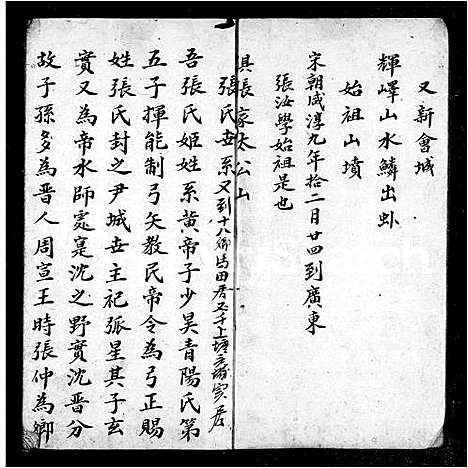 又新會城
輝嶧山水鱗出虬
始祖山墳
宋朝咸淳九年拾二月廿四到廣東
張汝學始祖是也
具張家太公山
張氏世系又到十八鄉馬田居又千上塘
吾張氏姬姓系黃帝子少昊青陽氏第
五子揮能制弓矢教民帝令為弓正賜
姓張氏封之尹城世主祀弧星其子玄
實又為帝水師寔寔沈之野實沈晋分
故子孫多為晋人周宣王時張仲為卿